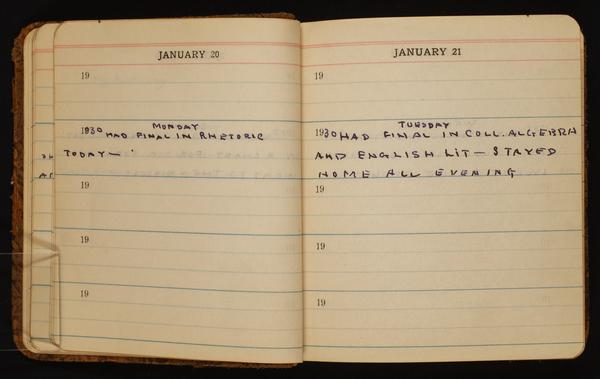 JANUARY 20
19
MONDAY
1930 HAD FINAL IN RHETORIC
TODAY—
19
19
19
JANUARY 21
19
TUESDAY
1930 HAD FINAL IN COLL. ALGEBRA
AND ENGLISH LIT — STAYED
HOME ALL EVENING
19
19
19